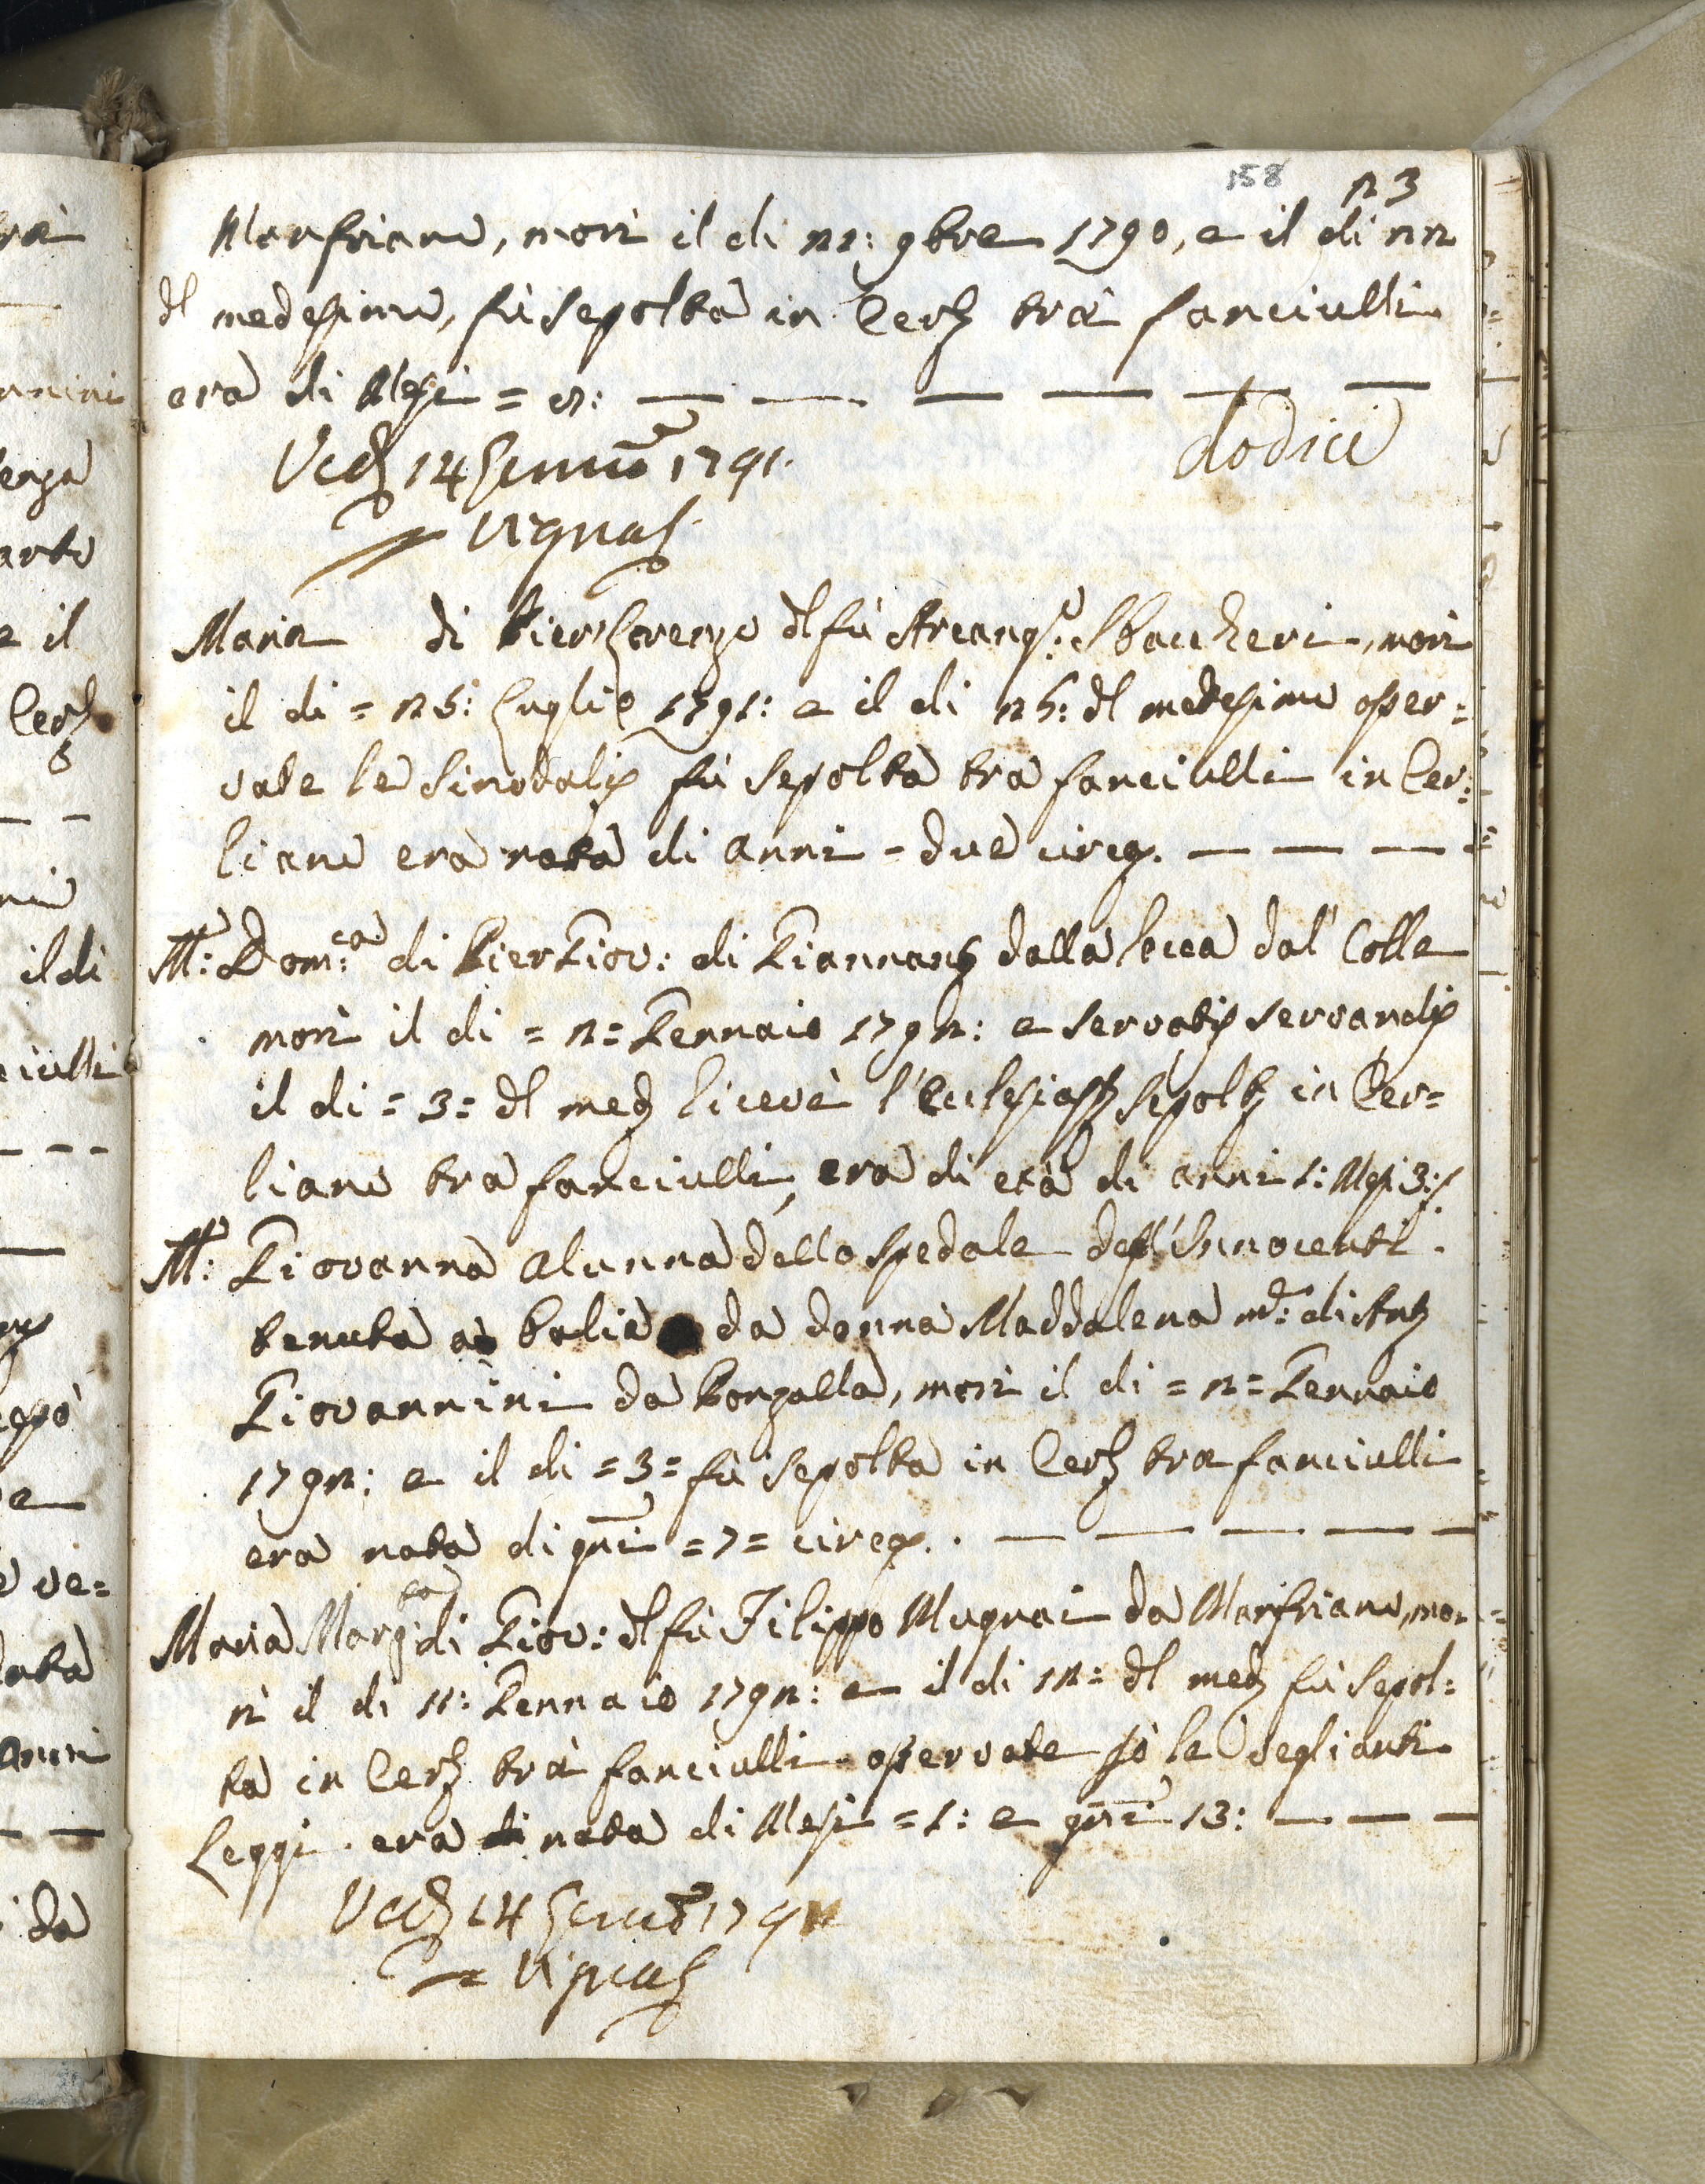 158 23
Manfriano, morì il di 21: 9bre 1790, e il di 22
dl medesimo, fù sepolta in Cerl: trà fanciulli
era di Mesi = 2: — — — — — —
dodici
Ved: 14 Genn.o 1791.
Vignas
Maria di Pier Lorenzo dl fù Arcang.o: Sbaccheri, morì
il di = 25: Luglio 1791: e il di 26: dl medesimo osser=
vate le Sinodali fù sepolta tra fanciulli in Cer:
liano era nata di anni - due circa. — — —
M.a: Dom:ca di Pier Giov: di Giannani dalla Cocca dal' Colle
morì il di = 2 = Gennaio 1792: e servatis servandis
il di = 3 = dl med: licevè l'Ecclesiast: Sepolt: in Cer=
liano tra fanciulli, era di età di anni 1: Mesi 3:/
M.a: Giovanna alunna dello spedale degl'Innocenti.
tenuta a balia da donna Maddalena m.e: di Ant:
Giovannini da Bonzalla, morì il di = 2 = Gennaio
1792: e il di = 3 = fù sepolta in Cerl: tra fanciulli
era nata di gni = 7 = circa. . — — — — —
Maria Marg:ta di Giov: dl fù Filippo Mugnai da Manfriano, mo-
rì il di 11: Gennaio 1792: e il di 12: dl med: fù sepol:
ta in Cerl: trà fanciulli osservate pò le veglianti
Leggi. era nata di Mesi = 1: e gni 13: — — —
Ved: 14 Genn.o 1792
Vignas